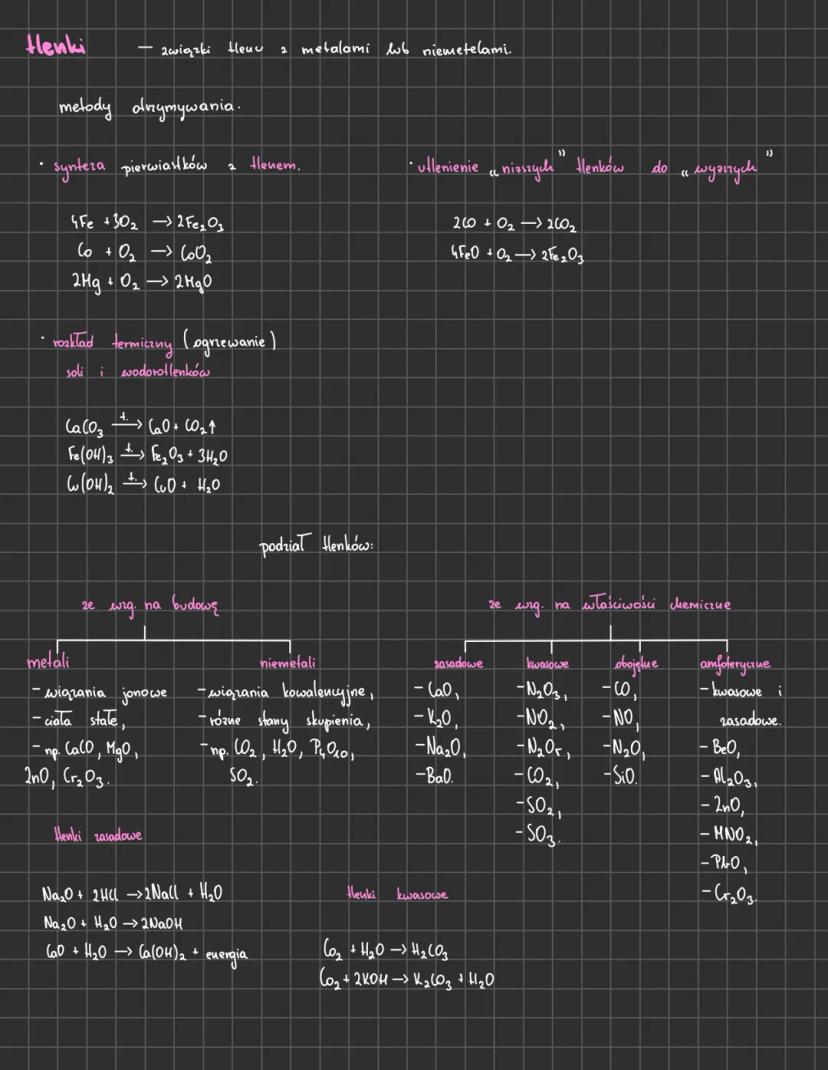 tlenki – związki tlenu z metalami lub niemetalami.
metody otrzymywania.
• synteza pierwiastków z tlenem.
4Fe + 3O₂ → 2Fe₂O₃
Co + O₂ → CoO₂
2Mg + O₂ → 2MgO
• utlenienie „niższych” tlenków do „wyższych”
2CO + O₂ → 2CO₂
4FeO + O₂ → 2Fe₂O₃
• rozkład termiczny (ogrzewanie)
soli i wodorotlenków
CaCO₃ –t.→ CaO + CO₂↑
Fe(OH)₃ –t.→ Fe₂O₃ + 3H₂O
Cu(OH)₂ –t.→ CuO + H₂O
podział tlenków:
ze wzg. na budowę
metali
– wiązania jonowe
– ciała stałe,
– np. CaCO, MgO,
ZnO, Cr₂O₃.
niemetali
– wiązania kowalencyjne,
– różne stany skupienia,
– np. CO₂, H₂O, P₄O₁₀,
SO₂.
ze wzg. na właściwości chemiczne
zasadowe
– CaO,
– K₂O,
– Na₂O,
– BaO.
kwasowe
– N₂O₃,
– NO₂,
– N₂O₅,
– CO₂,
– SO₂,
– SO₃.
obojętne
– CO,
– NO,
– N₂O,
– SiO.
amfoteryczne
– kwasowe i
zasadowe.
– BeO,
– Al₂O₃,
– ZnO,
– MNO₂,
– PbO,
– Cr₂O₃.
tlenki zasadowe
Na₂O + 2HCl → 2NaCl + H₂O
Na₂O + H₂O → 2NaOH
CaO + H₂O → Ca(OH)₂ + energia
tlenki kwasowe
Co₂ + H₂O → H₂CO₃
Co₂ + 2KOH → K₂CO₃ + H₂O